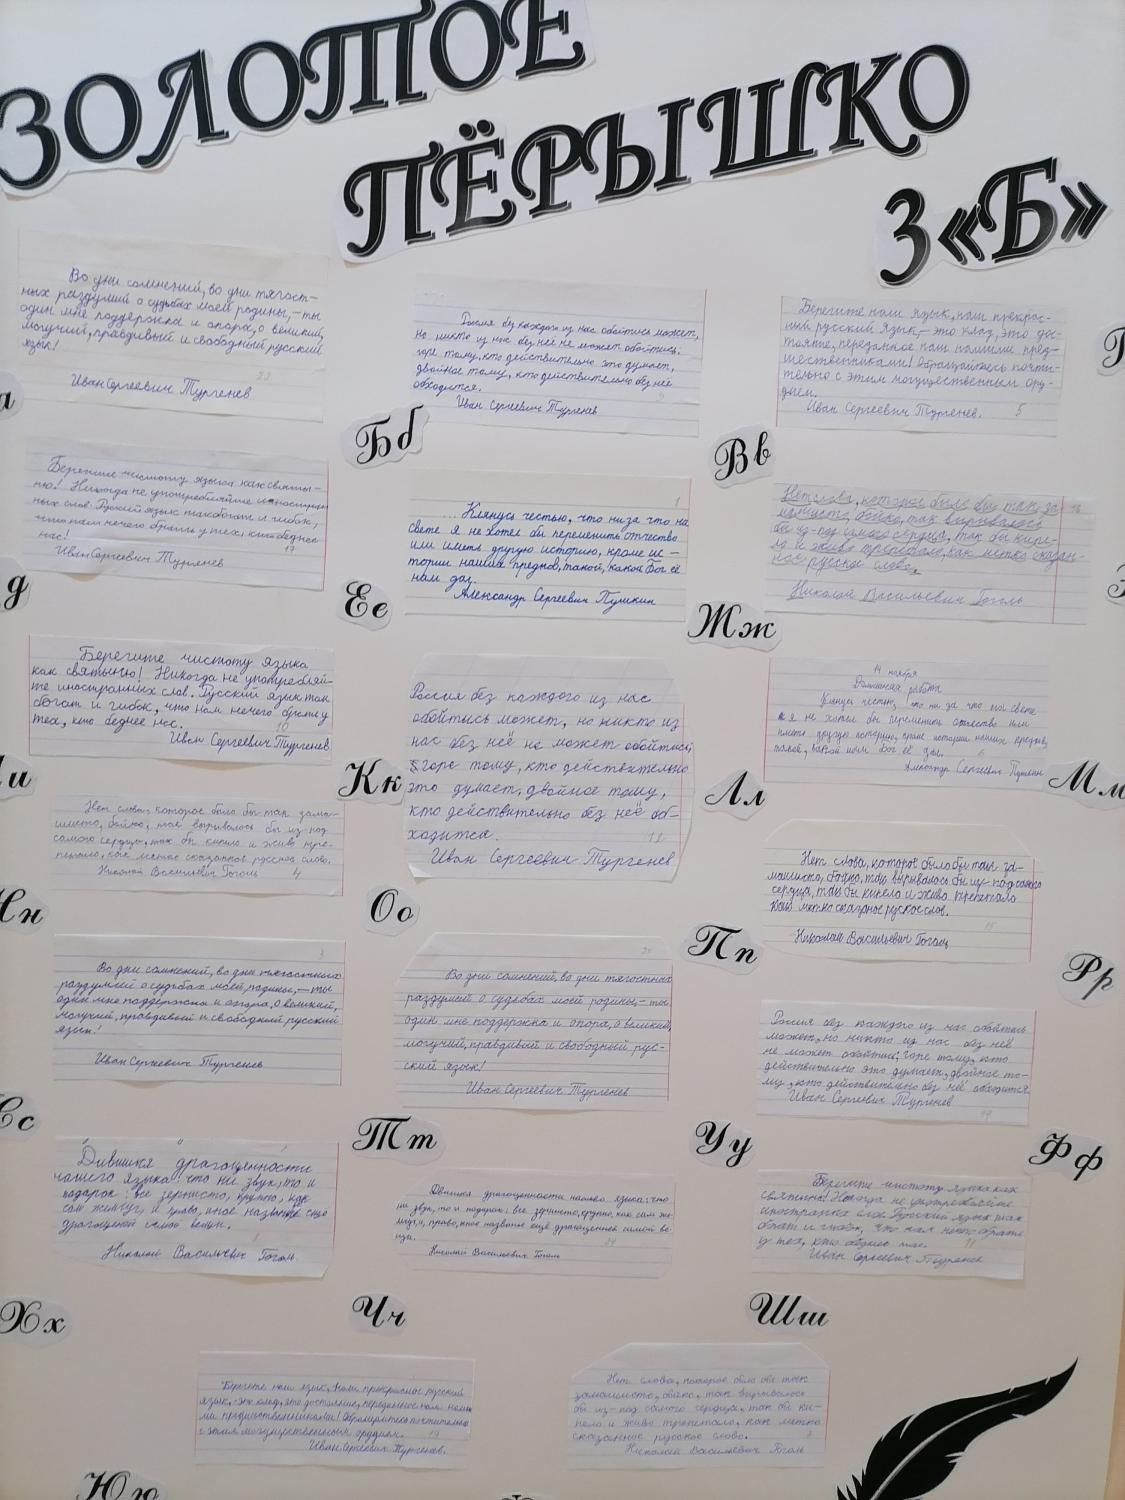 ЗОЛОТОЕ
ПЁРЫШКО
3«Б»
Во дни сомнений, во дни тягост-
ных раздумий о судьбах моей родины, – ты
один мне поддержка и опора, о великий,
могучий, правдивый и свободный русский
язык!
22
Иван Сергеевич Тургенев
Россия без каждого из нас обойтись может,
но никто из нас без неё не может обойтись;
горе тому, кто действительно это думает,
двойное тому, кто действительно без неё
обходится.
9
Иван Сергеевич Тургенев
Берегите наш язык, наш прекрас-
ный русский язык, – это клад, это дос-
тояние, переданное нам нашими пред-
шественниками! Обращайтесь почти-
тельно с этим могущественным ору-
дием.
Иван Сергеевич Тургенев. 5
а
Бб
Вв
Г
Берегите чистоту языка как святы-
ню! Никогда не употребляйте иностран
ных слов. Русский язык так богат и гибок,
что нам нечего брать у тех, кто беднее
нас! 17
Иван Сергеевич Тургенев
1
...Клянусь честью, что ни за что на
свете я не хотел бы переменить отчество
или иметь другую историю, кроме ис –
тории наших предков, такой, какой Бог её
нам дал.
Александр Сергеевич Пушкин
Нет слова, которое было бы так за- 16
машисто, бойко, так вырывалось
бы из-под самого сердца, так бы кипе-
ло и живо трепетало, как метко сказан-
ное русское слово.
Николай Васильевич Гоголь
д
Ее
Жж
З
Берегите чистоту языка
как святыню! Никогда не употребляй-
те иностранных слов. Русский язык так
богат и гибок, что нам нечего брать у
тех, кто беднее нас. 10
Иван Сергеевич Тургенев
Россия без каждого из нас
обойтись может, но никто из
нас без неё не может обойтись;
горе тому, кто действительно
это думает, двойное тому,
кто действительно без неё об-
ходится. 12
Иван Сергеевич Тургенев
14 ноября
Домашняя работа
Клянусь честью, что ни за что на свете
я не хотел бы переменить отечество или
иметь другую историю, кроме истории наших предков,
такой, какой нам Бог её дал. 6
Александр Сергеевич Пушкин
и
Кк
Лл
Мм
Нет слова, которое было бы так зама-
шисто, бойко, так вырывалось бы из-под
самого сердца, так бы кипело и живо тре-
петало, как метко сказанное русское слово.
Николай Васильевич Гоголь 4
Нет слова, которое было бы так за-
машисто, бойко, так вырывалось бы из-под самого
сердца, так бы кипело и живо трепетало
как метко сказаное руское слов.
15
Николай Васильевич Гоголь
Нн
Оо
Пп
Рр
3
Во дни сомнений, во дни тягостных
раздумий о судьбах моей родины, – ты
один мне поддержка и опора, о великий,
могучий, правдивый и свободный русский
язык!
Иван Сергеевич Тургенев
Во дни сомнений, во дни тягостных
раздумий о судьбах моей родины, – ты
один мне поддержка и опора, о великий,
могучий, правдивый и свободный рус-
ский язык!
Иван Сергеевич Тургенев
Россия без каждого из нас обойтись
может, но никто из нас без неё
не может обойтись; горе тому, кто
действительно это думает, двойное то-
му, кто действительно без неё обходится
Иван Сергеевич Тургенев
19
Сс
Тт
Уу
Фф
Дивишься драгоценности
нашего языка: что ни звук, то и
подарок: все зернисто, крупно, как
сам жемчуг, и право, иное название еще
драгоценней самой вещи.
Николай Васильевич Гоголь.
Дивишься драгоценности нашего языка: что
ни звук, то и подарок: все зернисто, крупно, как сам же-
мчуг, и, право, иное названье ещё драгоценней самой ве-
щи. 24
Николай Васильевич Гоголь
Берегите чистоту языка как
святыню! Никогда не употребляйте
иностранных слов. Русский язык так
богат и гибок, что нам нечего брать
у тех, кто беднее нас. 11
Иван Сергеевич Тургенев
Хх
Чч
Шш
Берегите наш язык, наш прекрасный русский
язык, – это клад, это достояние, переданное нам наши-
ми предшественниками! Обращайтесь почтительно
с этим могущественным орудием. 19
Иван Сергеевич Тургенев.
Нет слова, которое было бы так
замашисто, бойко, так вырывалось
бы из-под самого сердца, так бы ки-
пело и живо трепетало, как метко
сказанное русское слово.
Николай Васильевич Гоголь
Юю